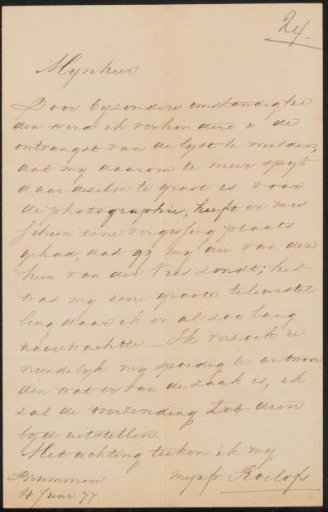 24.
Mynheer
Door byzondere omstandighe
den werd ik verhinderd u de
ontvangst van de lyst te melden,
dat my daarom te meer spyt
daar dezelve te groot is voor
de photographie, heeft er mis
schien eene vergissing plaats
gehad, dat gy my die van den
heer van der Vies zondt; het
was my eene groote teleurstel
ling daar ik er al zoo lang
naar wachtte. — Ik verzoek u
vriendelyk my spoedig te antwoor
den wat er van de zaak is, ik
zal de verzending tot dien
tyd uitstellen.
Met achting teeken ik my
Brummen
4 Juni 77.
Roelofs